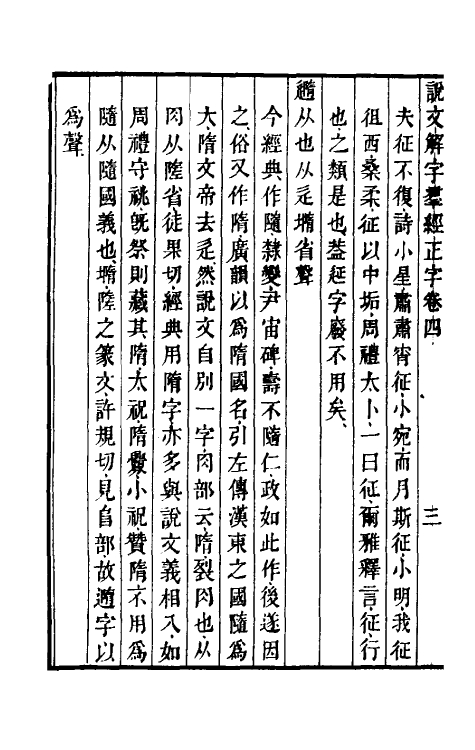 說文解字羣經正字卷四 三
夫征不復詩小星肅肅宵征小宛而月斯征小明我征
徂西桑柔征以中垢周禮太卜一曰征爾雅釋言征行
也之類是也葢延字廢不用矣
䢫从也从辵𡐦省聲
今經典作隨隸變尹宙碑壽不隨仁政如此作後遂因
之俗又作隋廣韻以爲隋國名引左傳漢東之國隨爲
大隋文帝去辵然說文自別一字肉部云隋裂肉也从
肉从陸省徒果切經典用隋字亦多與說文義相入如
周禮守祧旣祭則藏其隋太祝隋釁小祝贊隋不用爲
隨从隨國義也𡐦陸之篆文許規切見𨸏部故䢫字以
爲聲